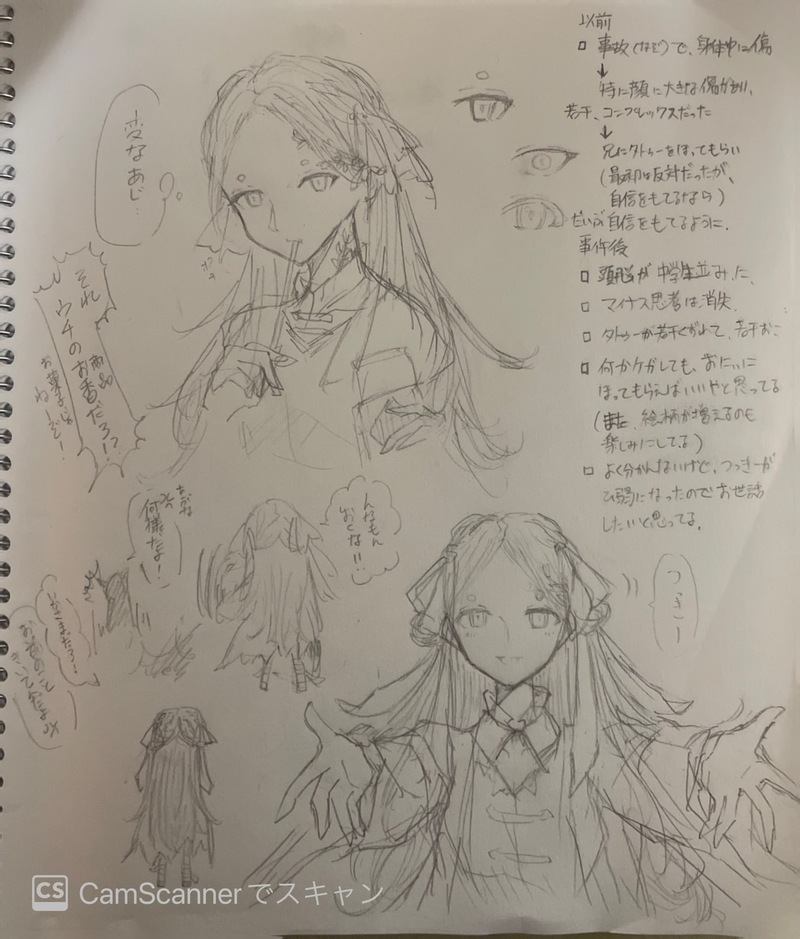 以前
事故(など)で、身体中に傷
↓
特に顔に大きな傷があり、
若干、コンプレックスだった
↓
兄にタトゥーをほってもらい
(最初は反対だったが、
自信をもてるなら)
だいぶ自信をもてるように.
事件後
頭脳が中学生並みに.
マイナス思考は消失.
タトゥーが若干くずれて、若干おこ
何かケガしても、おにぃに
ほってもらえばいいやと思ってる
(また、絵柄が増えるのも
楽しみにしてる)
よく分かんないけど、つっきーが
ひ弱になったのでお世話
したいと思ってる.
変なあじ…
それ
ウチのお香だろ!?
商品
お菓子じゃ
ねーぞー!
んなもん
おくな!!
何様だよ!
つっきー
CS CamScannerでスキャン